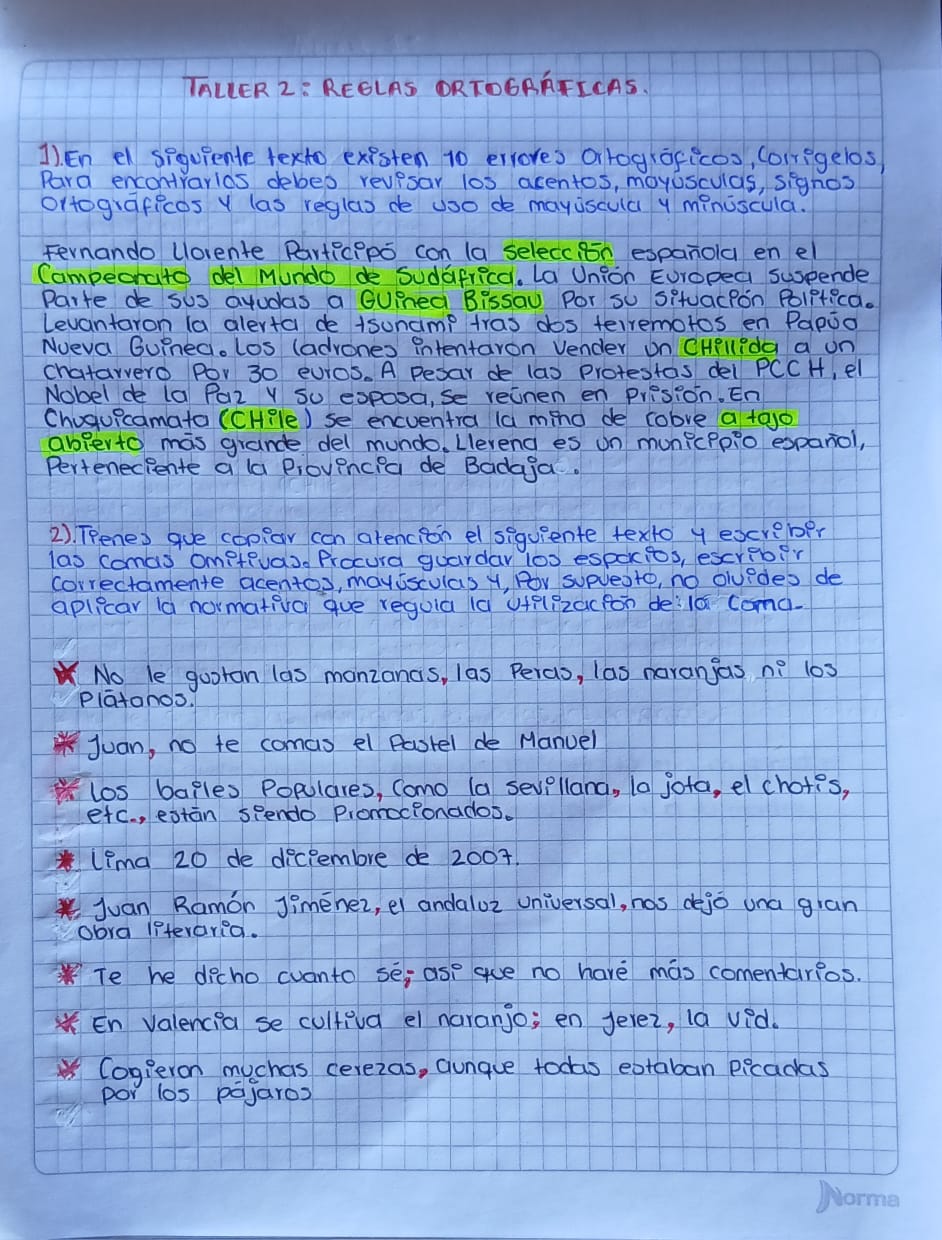 TALLER 2: REGLAS ORTOGRÁFICAS.
1). En el siguiente texto existen 10 errores ortográficos, Corrigelos,
Para encontrarlos debes revisar los acentos, mayúsculas, signos
Ortográficos y las reglas de uso de mayúscula y minúscula.
Fernando Llorente Participó con la selección española en el
Campeonato del Mundo de Sudáfrica. La Unión Europea suspende
Parte de sus ayudas a Guinea Bissau Por su situación Política.
Levantaron la alerta de tsunami tras dos terremotos en Papúa
Nueva Guinea. Los ladrones intentaron vender un CHillida a un
chatarrero Por 30 euros. A Pesar de las Protestas del PCCH, el
Nobel de la Paz y su esposa, se reúnen en prisión. En
Chuquicamata (CHile) se encuentra la mina de cobre a tajo
abierto más grande del mundo. Llerena es un municipio español,
Perteneciente a la Provincia de Badaja.
2). Tienes que copiar con atención el siguiente texto y escribir
las comas omitivas. Procura guardar los espacios, escribir
correctamente acentos, mayúsculas y, Por supuesto, no olvides de
aplicar la normativa que regula la utilización de la Coma.
* No le gustan las manzanas, las Peras, las naranjas ni los
Plátanos.
* Juan, no te comas el Pastel de Manuel
* Los bailes Populares, Como la sevillana, la jota, el chotis,
etc., están siendo Promocionados.
* Lima 20 de diciembre de 2007.
* Juan Ramón Jiménez, el andaluz universal, nos dejó una gran
obra literaria.
* Te he dicho cuanto sé; así que no haré más comentarios.
* En Valencia se cultiva el naranjo; en Jerez, la vid.
* Cogieron muchas cerezas, aunque todas estaban Picadas
por los pájaros
Norma